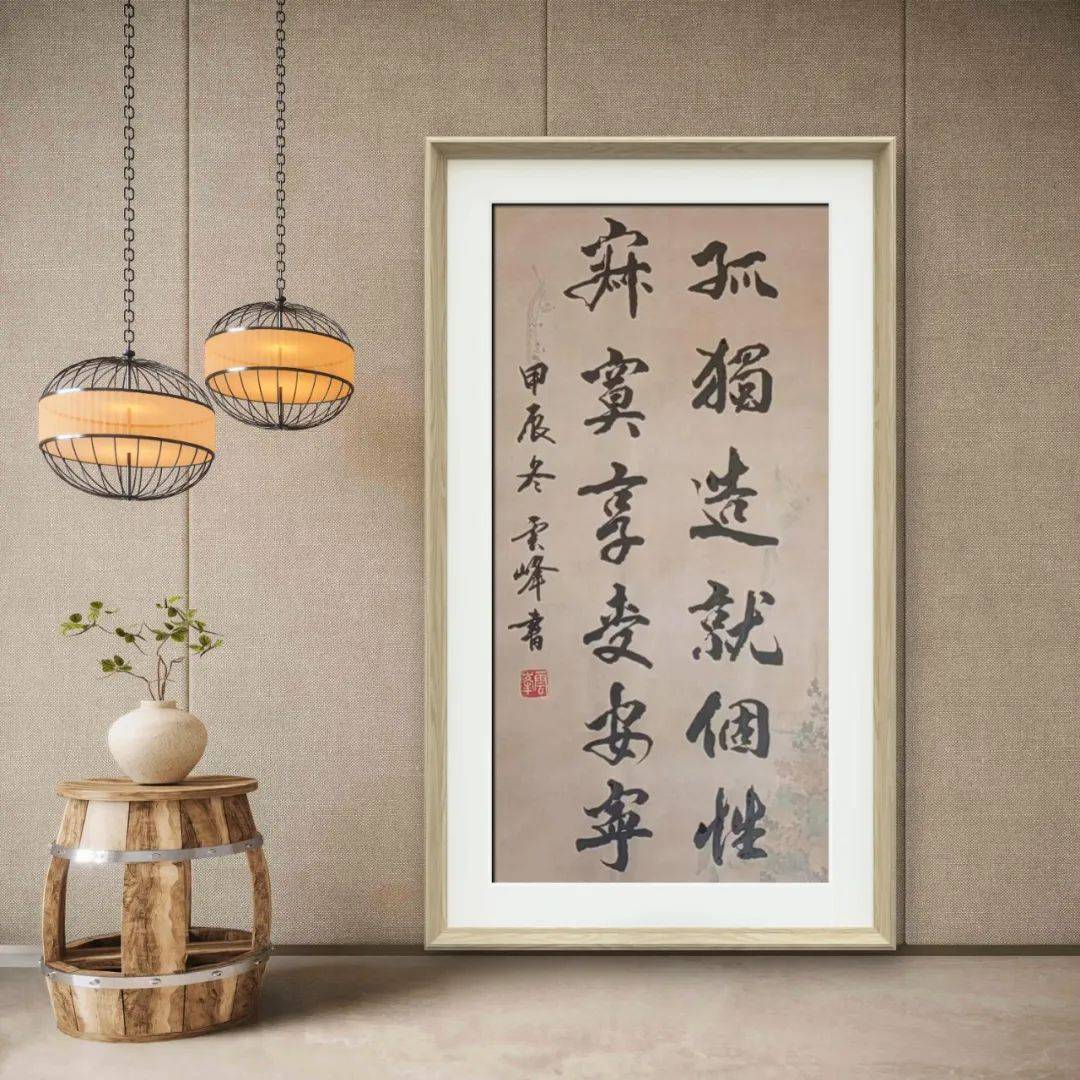 孤獨造就個性
寂寞享受安寧
甲辰冬 雲峰書
雲峯